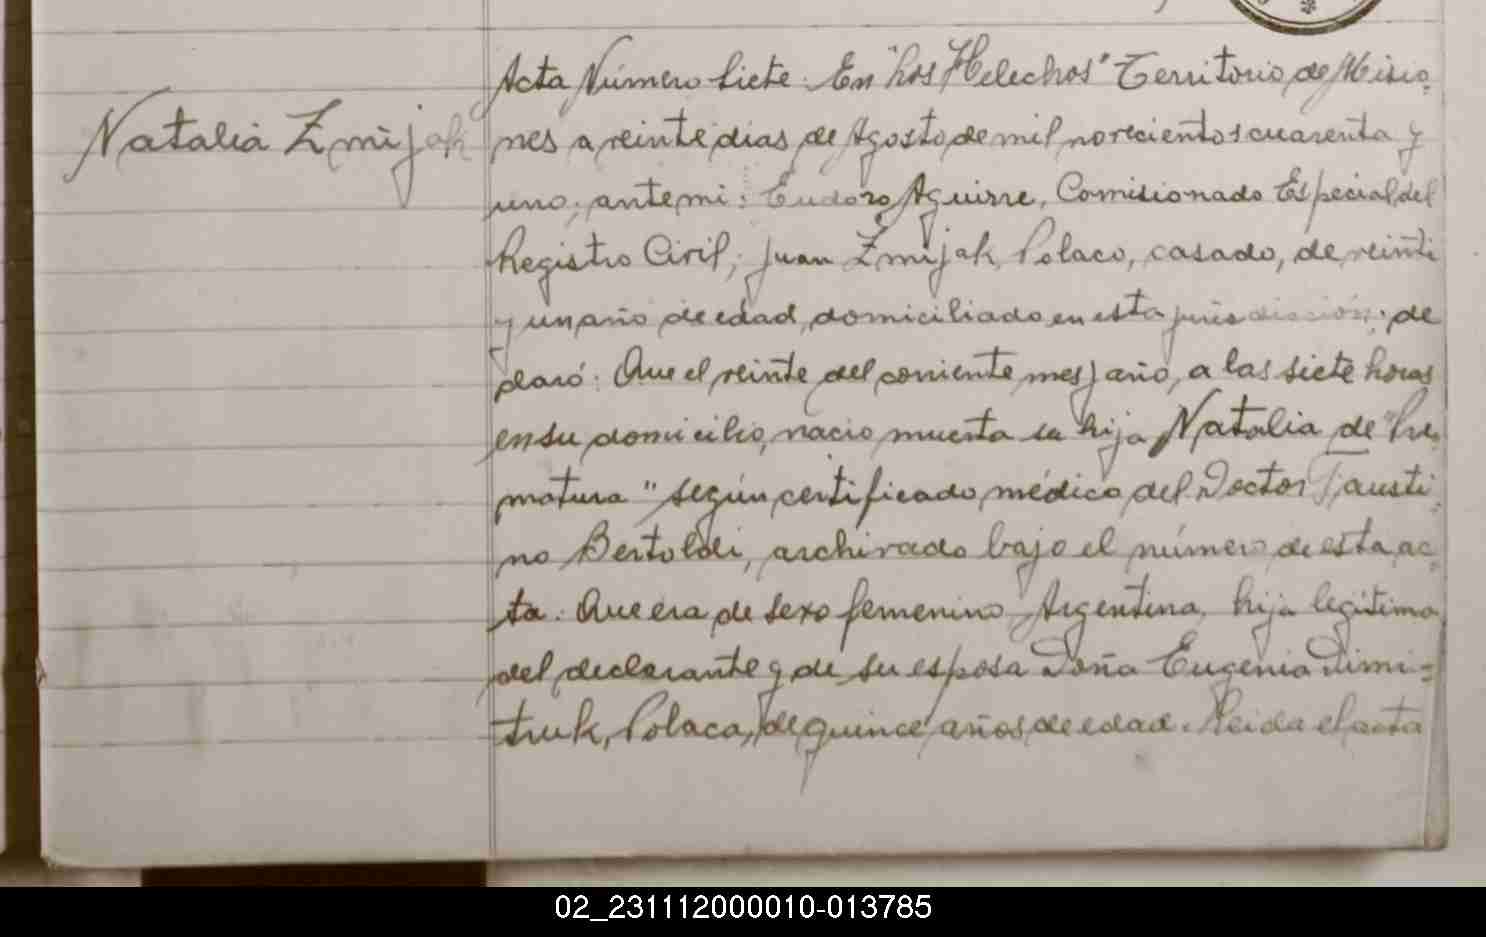 Natalia Zmijak
Acta Número Siete: En "Los Helechos" Territorio de Misio-
nes a veinte dias de Agosto de mil novecientos cuarenta y
uno; ante mi: Eudoro Aguirre, Comisionado Especial del
Registro Civil; Juan Zmijak, Polaco, casado, de veinti
y un año de edad, domiciliado en esta jurisdicción; de
claró: Que el veinte del corriente mes y año, a las siete horas
en su domicilio, nacio muerta su hija Natalia de "Pre-
matura" según certificado médico del Doctor Fausti-
no Bertoldi, archivado bajo el número de esta ac-
ta. Que era de sexo femenino Argentina, hija legitima
del declarante y de su esposa Doña Eugenia Dimi=
truk, Polaca, de quince años de edad. Leida el acta
02_231112000010-013785